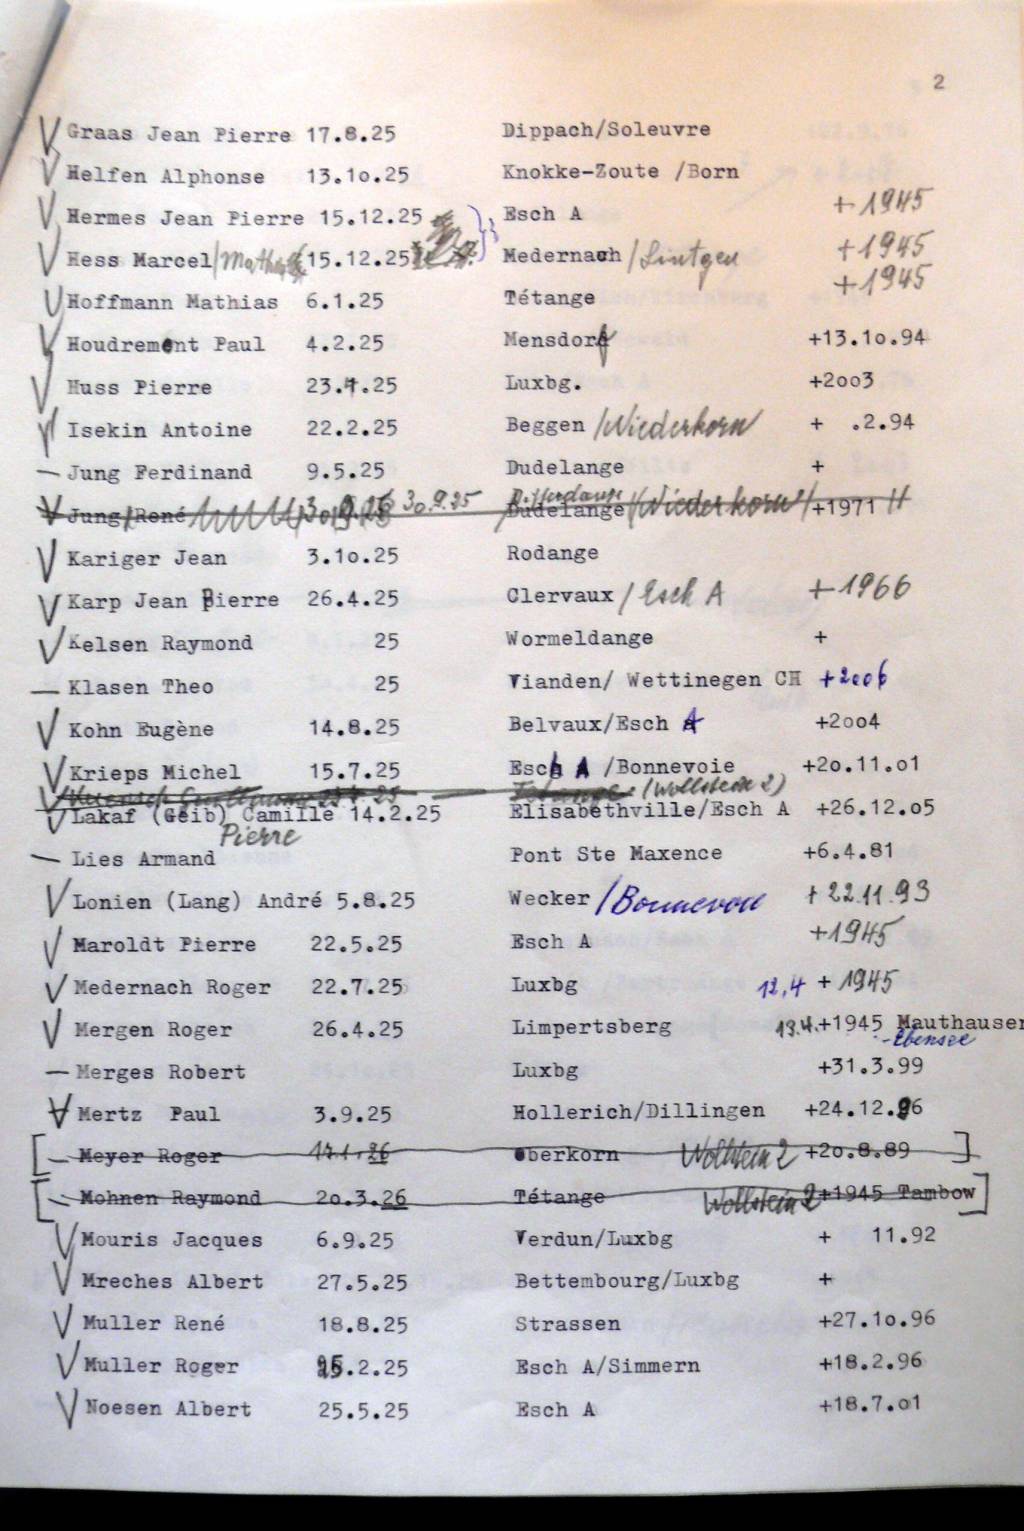 2
V Graas Jean Pierre 17.8.25 Dippach/Soleuvre
V Helfen Alphonse 13.1o.25 Knokke-Zoute /Born
V Hermes Jean Pierre 15.12.25 Esch A + 1945
V Hess Marcel 15.12.25 Medernach /Lintgen +1945
V Hoffmann Mathias 6.1.25 Tétange +1945
V Houdremont Paul 4.2.25 Mensdorf +13.1o.94
V Huss Pierre 23.4.25 Luxbg. +2oo3
V Isekin Antoine 22.2.25 Beggen /Niederkorn + .2.94
— Jung Ferdinand 9.5.25 Dudelange +
V Jung René 30.9.25 Differdange Dudelange /Niederkorn +1971
V Kariger Jean 3.1o.25 Rodange
V Karp Jean Pierre 26.4.25 Clervaux / Esch A + 1966
V Kelsen Raymond 25 Wormeldange +
— Klasen Theo 25 Vianden/ Wettinegen CH +2006
V Kohn Eugène 14.8.25 Belvaux/Esch A +2oo4
V Krieps Michel 15.7.25 Esch A /Bonnevoie +2o.11.o1
V (Wollstein 2)
V Lakaf (Geib) Camille 14.2.25 Elisabethville/Esch A +26.12.o5
Pierre
— Lies Armand Pont Ste Maxence +6.4.81
V Lonien (Lang) André 5.8.25 Wecker /Bonnevoie + 22.11.93
V Maroldt Pierre 22.5.25 Esch A +1945
V Medernach Roger 22.7.25 Luxbg 12.4 + 1945
V Mergen Roger 26.4.25 Limpertsberg 13.4.+1945 Mauthausen
-Ebensee
— Merges Robert Luxbg +31.3.99
V Mertz Paul 3.9.25 Hollerich/Dillingen +24.12.96
[— Meyer Roger 17.1.26 Oberkorn Wollstein 2 +2o.8.89 ]
[— Mohnen Raymond 2o.3.26 Tétange Wollstein 2 +1945 Tambow]
V Mouris Jacques 6.9.25 Verdun/Luxbg + 11.92
V Mreches Albert 27.5.25 Bettembourg/Luxbg +
V Muller René 18.8.25 Strassen +27.1o.96
V Muller Roger .2.25 Esch A/Simmern +18.2.96
V Noesen Albert 25.5.25 Esch A +18.7.o1